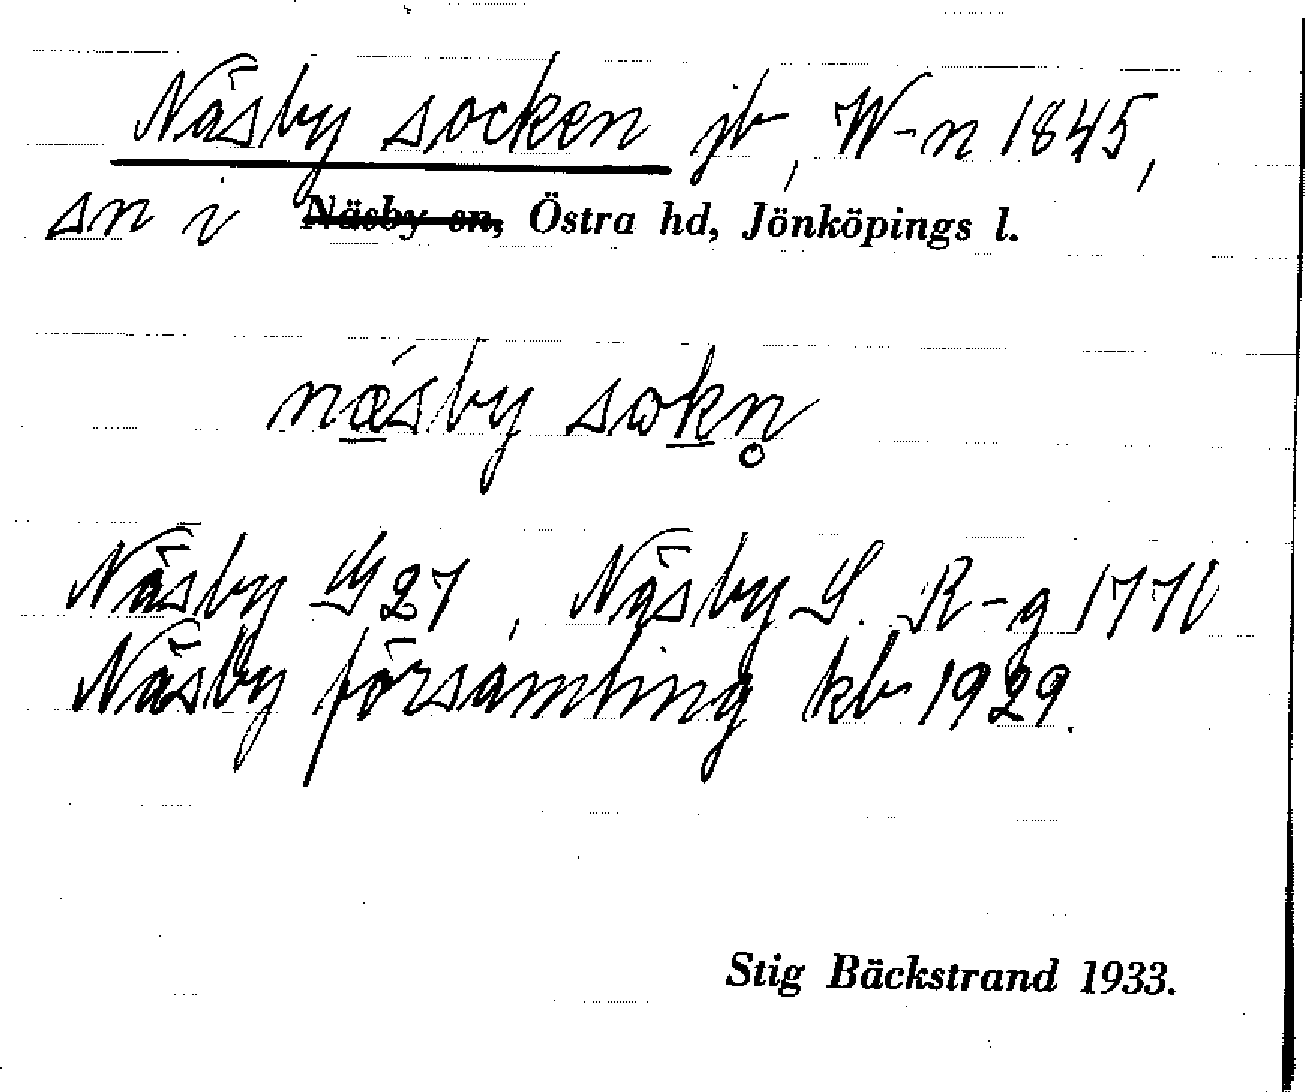 Näsby socken jb, W-n 1845,
sn i Näsby sn, Östra hd, Jönköpings l.
nǽsby sokn̥
Näsby G 27, Näsby S. R-g 1770
Näsby församling kb 1929.
Stig Bäckstrand 1933.